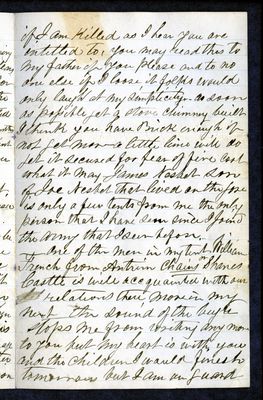 if I am killed as I hear you are
entitled to, you may read this to
my father if you please and to no
one else if I loose it folks would
only laugh at my simplicity as soon
as possible get a stove chimny built
I think you have Brick enough if
not get more a little lime will do
get it secured for fear of fire cost
what it may James Nesbet son
of Joe Nesbet that lived on the
is only a few tents from me the only
person that I have seen since I joined
the army that I seen before,
one of the men in my tent William
French from Antrim Shanes
Castle is well acquainted with our
relations there more in my
next The sound of the bugle
stops me from writing any more
to you but my heart is with you
and the children I would finish
tomorrow but I am on guard